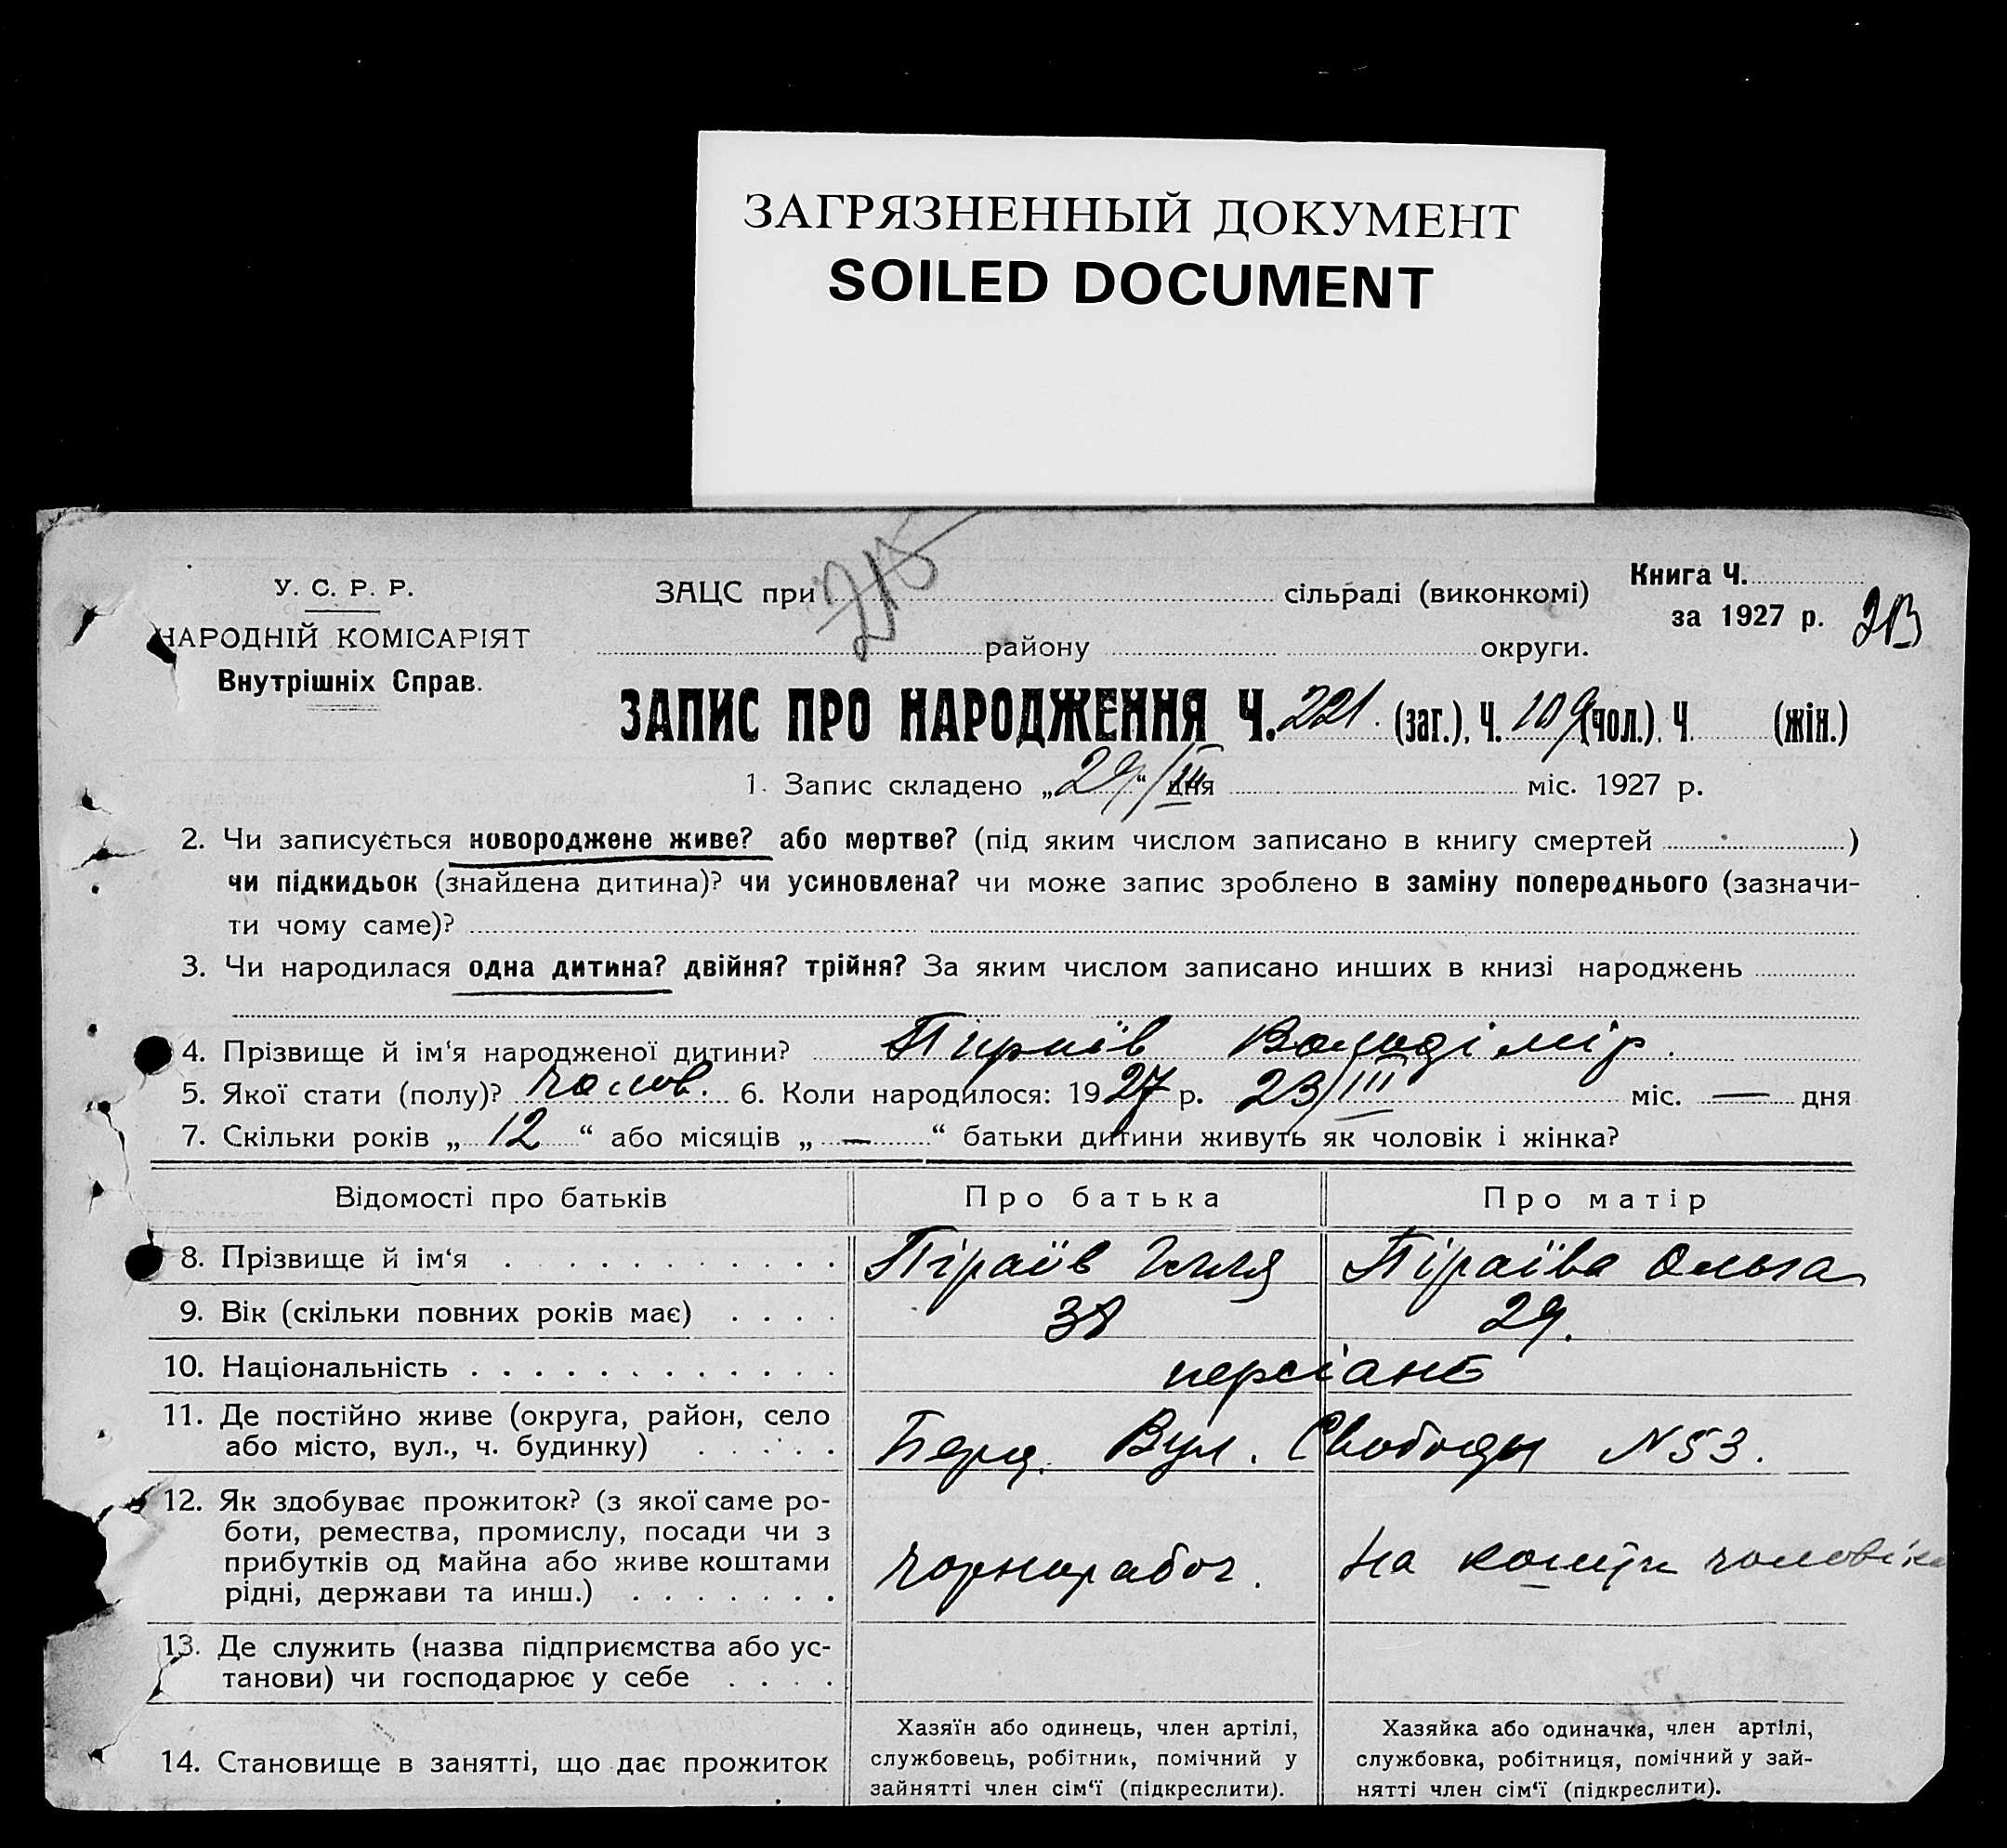 ЗАГРЯЗНЕННЫЙ ДОКУМЕНТ
SOILED DOCUMENT
215
У. С. Р. Р.
НАРОДНІЙ КОМІСАРІЯТ
Внутрішніх Справ.
ЗАЦС при сільраді (виконкомі)
району округи.
Книга Ч.
за 1927 р.
ЗАПИС ПРО НАРОДЖЕННЯ Ч. 221. (заг.), Ч. 109 (чол.). Ч. (жін.)
1. Запис складено „29/III“ дня міс. 1927 р.
2. Чи записується новороджене живе? або мертве? (під яким числом записано в книгу смертей )
чи підкидьок (знайдена дитина)? чи усиновлена? чи може запис зроблено в заміну попереднього (зазначи-
ти чому саме)?
3. Чи народилася одна дитина? двійня? трійня? За яким числом записано инших в книзі народжень
4. Прізвище й ім‘я народженої дитини? Піраїв Володімір.
5. Якої стати (полу)? чолов. 6. Коли народилося: 1927 р. 23/III міс. — дня
7. Скільки років „ 12 “ або місяців „ — “ батьки дитини живуть як чоловік і жінка?
Відомості про батьків Про батька Про матір
8. Прізвище й ім‘я Піраїв Илля Піраїва Ольга
9. Вік (скільки повних років має) 38 29.
10. Національність персіане
11. Де постійно живе (округа, район, село
або місто, вул., ч. будинку) Берд. Вул. Свободи N 53.
12. Як здобуває прожиток? (з якої саме ро-
боти, ремества, промислу, посади чи з
прибутків од майна або живе коштами
рідні, держави та инш.)
чорнорабоч. На кошти чоловіка
13. Де служить (назва підприємства або ус-
танови) чи господарює у себе
14. Становище в занятті, що дає прожиток
Хазяїн або одинець, член артілі,
службовець, робітник, помічний у
зайнятті член сім‘ї (підкреслити).
Хазяйка або одиначка, член артілі,
службовка, робітниця, помічний у зай-
нятті член сім‘ї (підкреслити).